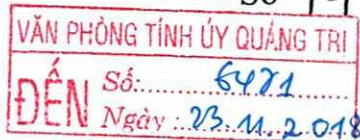 VĂN PHÒNG TỈNH ỦY QUẢNG TRỊ
ĐẾN
Số:
Ngày: 23.11.2018